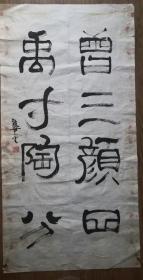 曾三顏四
禹寸陶分